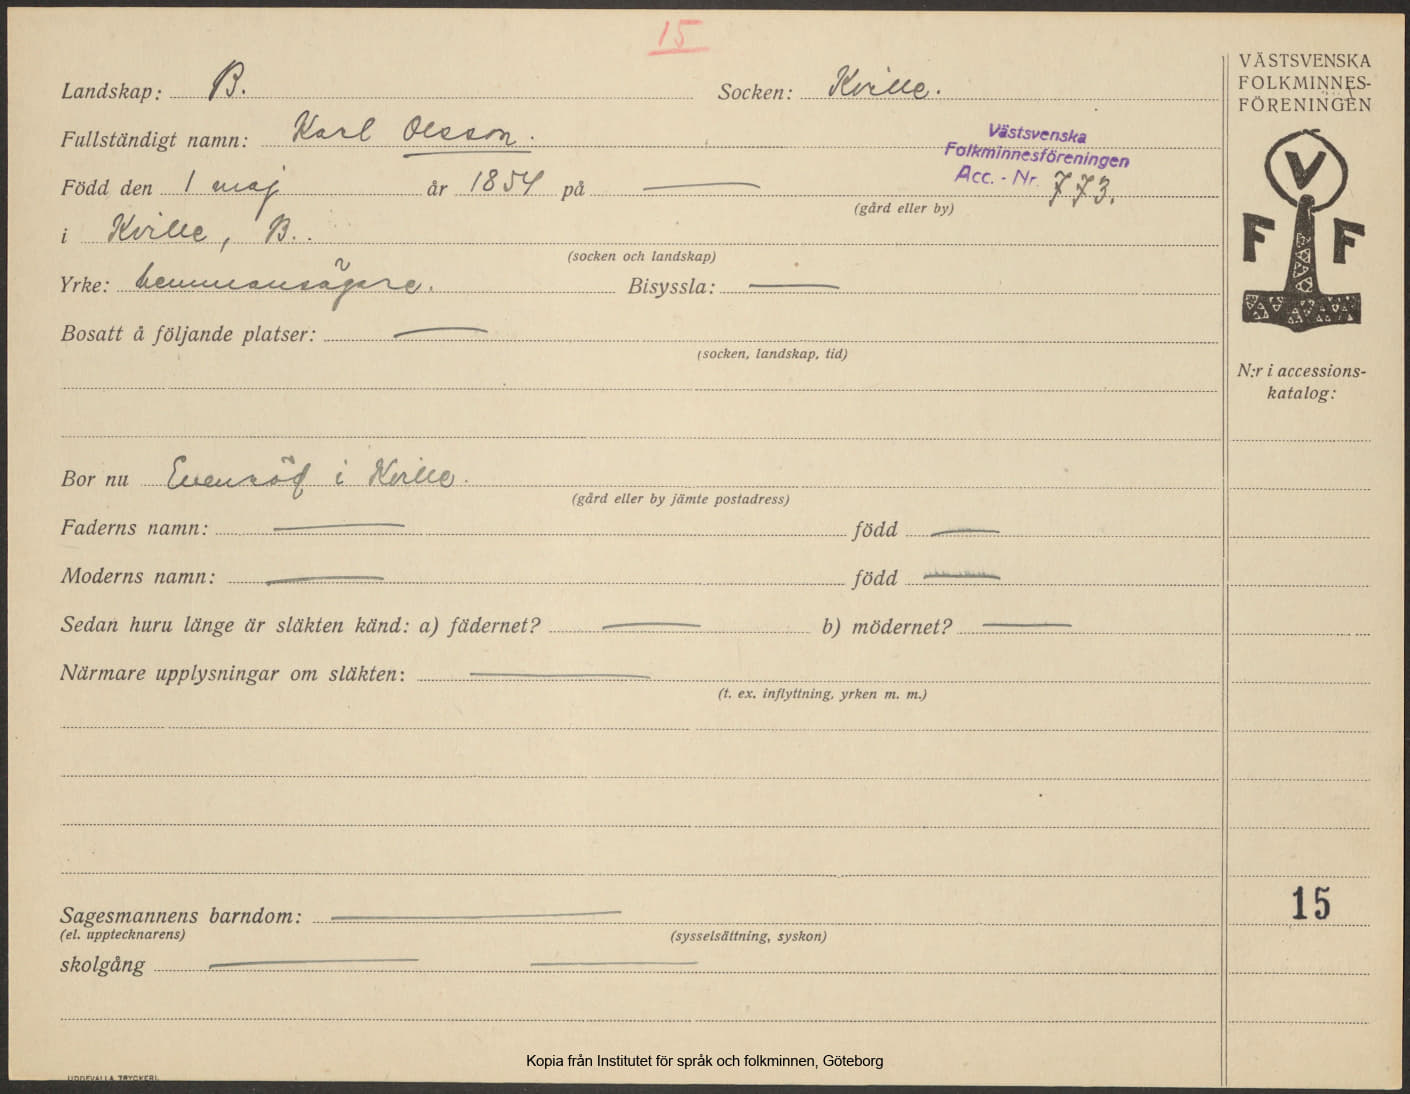 15
Landskap: B. Socken: Kville.
Fullständigt namn: Karl Olsson.
Västsvenska
Folkminnesföreningen
Acc. - Nr. 773.
Född den 1 maj år 1854 på
(gård eller by)
i Kville, B.
(socken och landskap)
Yrke: hemmansägare. Bisyssla:
Bosatt å följande platser:
(socken, landskap, tid)
Bor nu Evensröd i Kville.
(gård eller by jämte postadress)
Faderns namn: född
Moderns namn: född
Sedan huru länge är släkten känd: a) fädernet? b) mödernet?
Närmare upplysningar om släkten:
(t. ex. inflyttning, yrken m. m.)
Sagesmannens barndom:
(el. upptecknarens) (sysselsättning, syskon)
skolgång
VÄSTSVENSKA
FOLKMINNES-
FÖRENINGEN
V
F F
N:r i accessions-
katalog:
15
Kopia från Institutet för språk och folkminnen, Göteborg
UDDEVALLA TRYCKERI